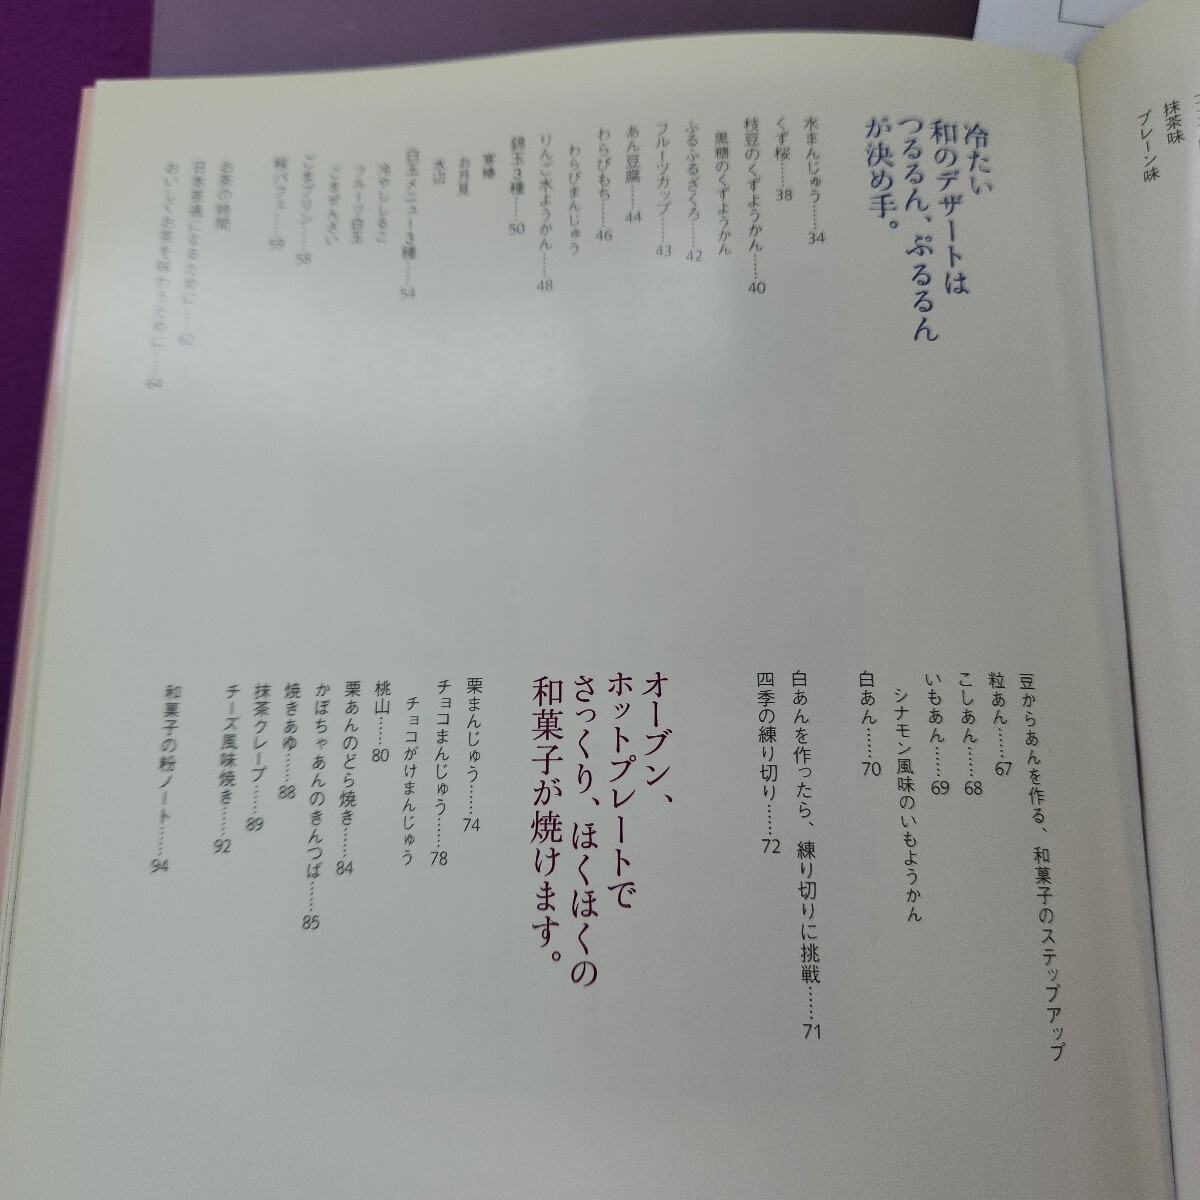 抹茶味
プレーン味
冷たい
和のデザートは
つるるん、ぷるるん
が決め手。
水まんじゅう……34
くず桜……38
枝豆のくずようかん……40
黒糖のくずようかん
ぷるぷるざくろ……42
フルーツカップ……43
あん豆腐……44
わらびもち……46
わらびまんじゅう
りんご水ようかん……48
錦玉3種……50
寒椿
お月見
水辺
白玉メニュー3種……54
冷やししるこ
フルーツ白玉
ごまぜんざい
ごまプリン……58
桜パフェ……59
お茶の時間
日本茶通になるために……62
おいしくお茶を味わうために……64
豆からあんを作る、和菓子のステップアップ
粒あん……67
こしあん……68
いもあん……69
シナモン風味のいもようかん
白あん……70
白あんを作ったら、練り切りに挑戦……71
四季の練り切り……72
オーブン、
ホットプレートで
さっくり、ほくほくの
和菓子が焼けます。
栗まんじゅう……74
チョコまんじゅう……78
チョコがけまんじゅう
桃山……80
栗あんのどら焼き……84
かぼちゃあんのきんつば……85
焼きあゆ……88
抹茶クレープ……89
チーズ風味焼き……92
和菓子の粉ノート……94